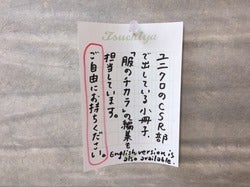 Tsuchiya
ユニクロのCSR部
で出している小冊子、
「服のチカラ」の編集を
担当しています。
ご自由にお持ちください。
English version is
also available.